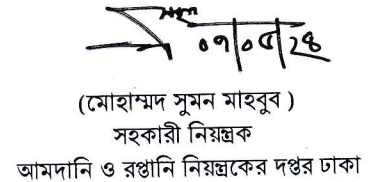 ০৭/০৫/২৪
(মোহাম্মদ সুমন মাহবুব )
সহকারী নিয়ন্ত্রক
আমদানি ও রপ্তানি নিয়ন্ত্রকের দপ্তর ঢাকা